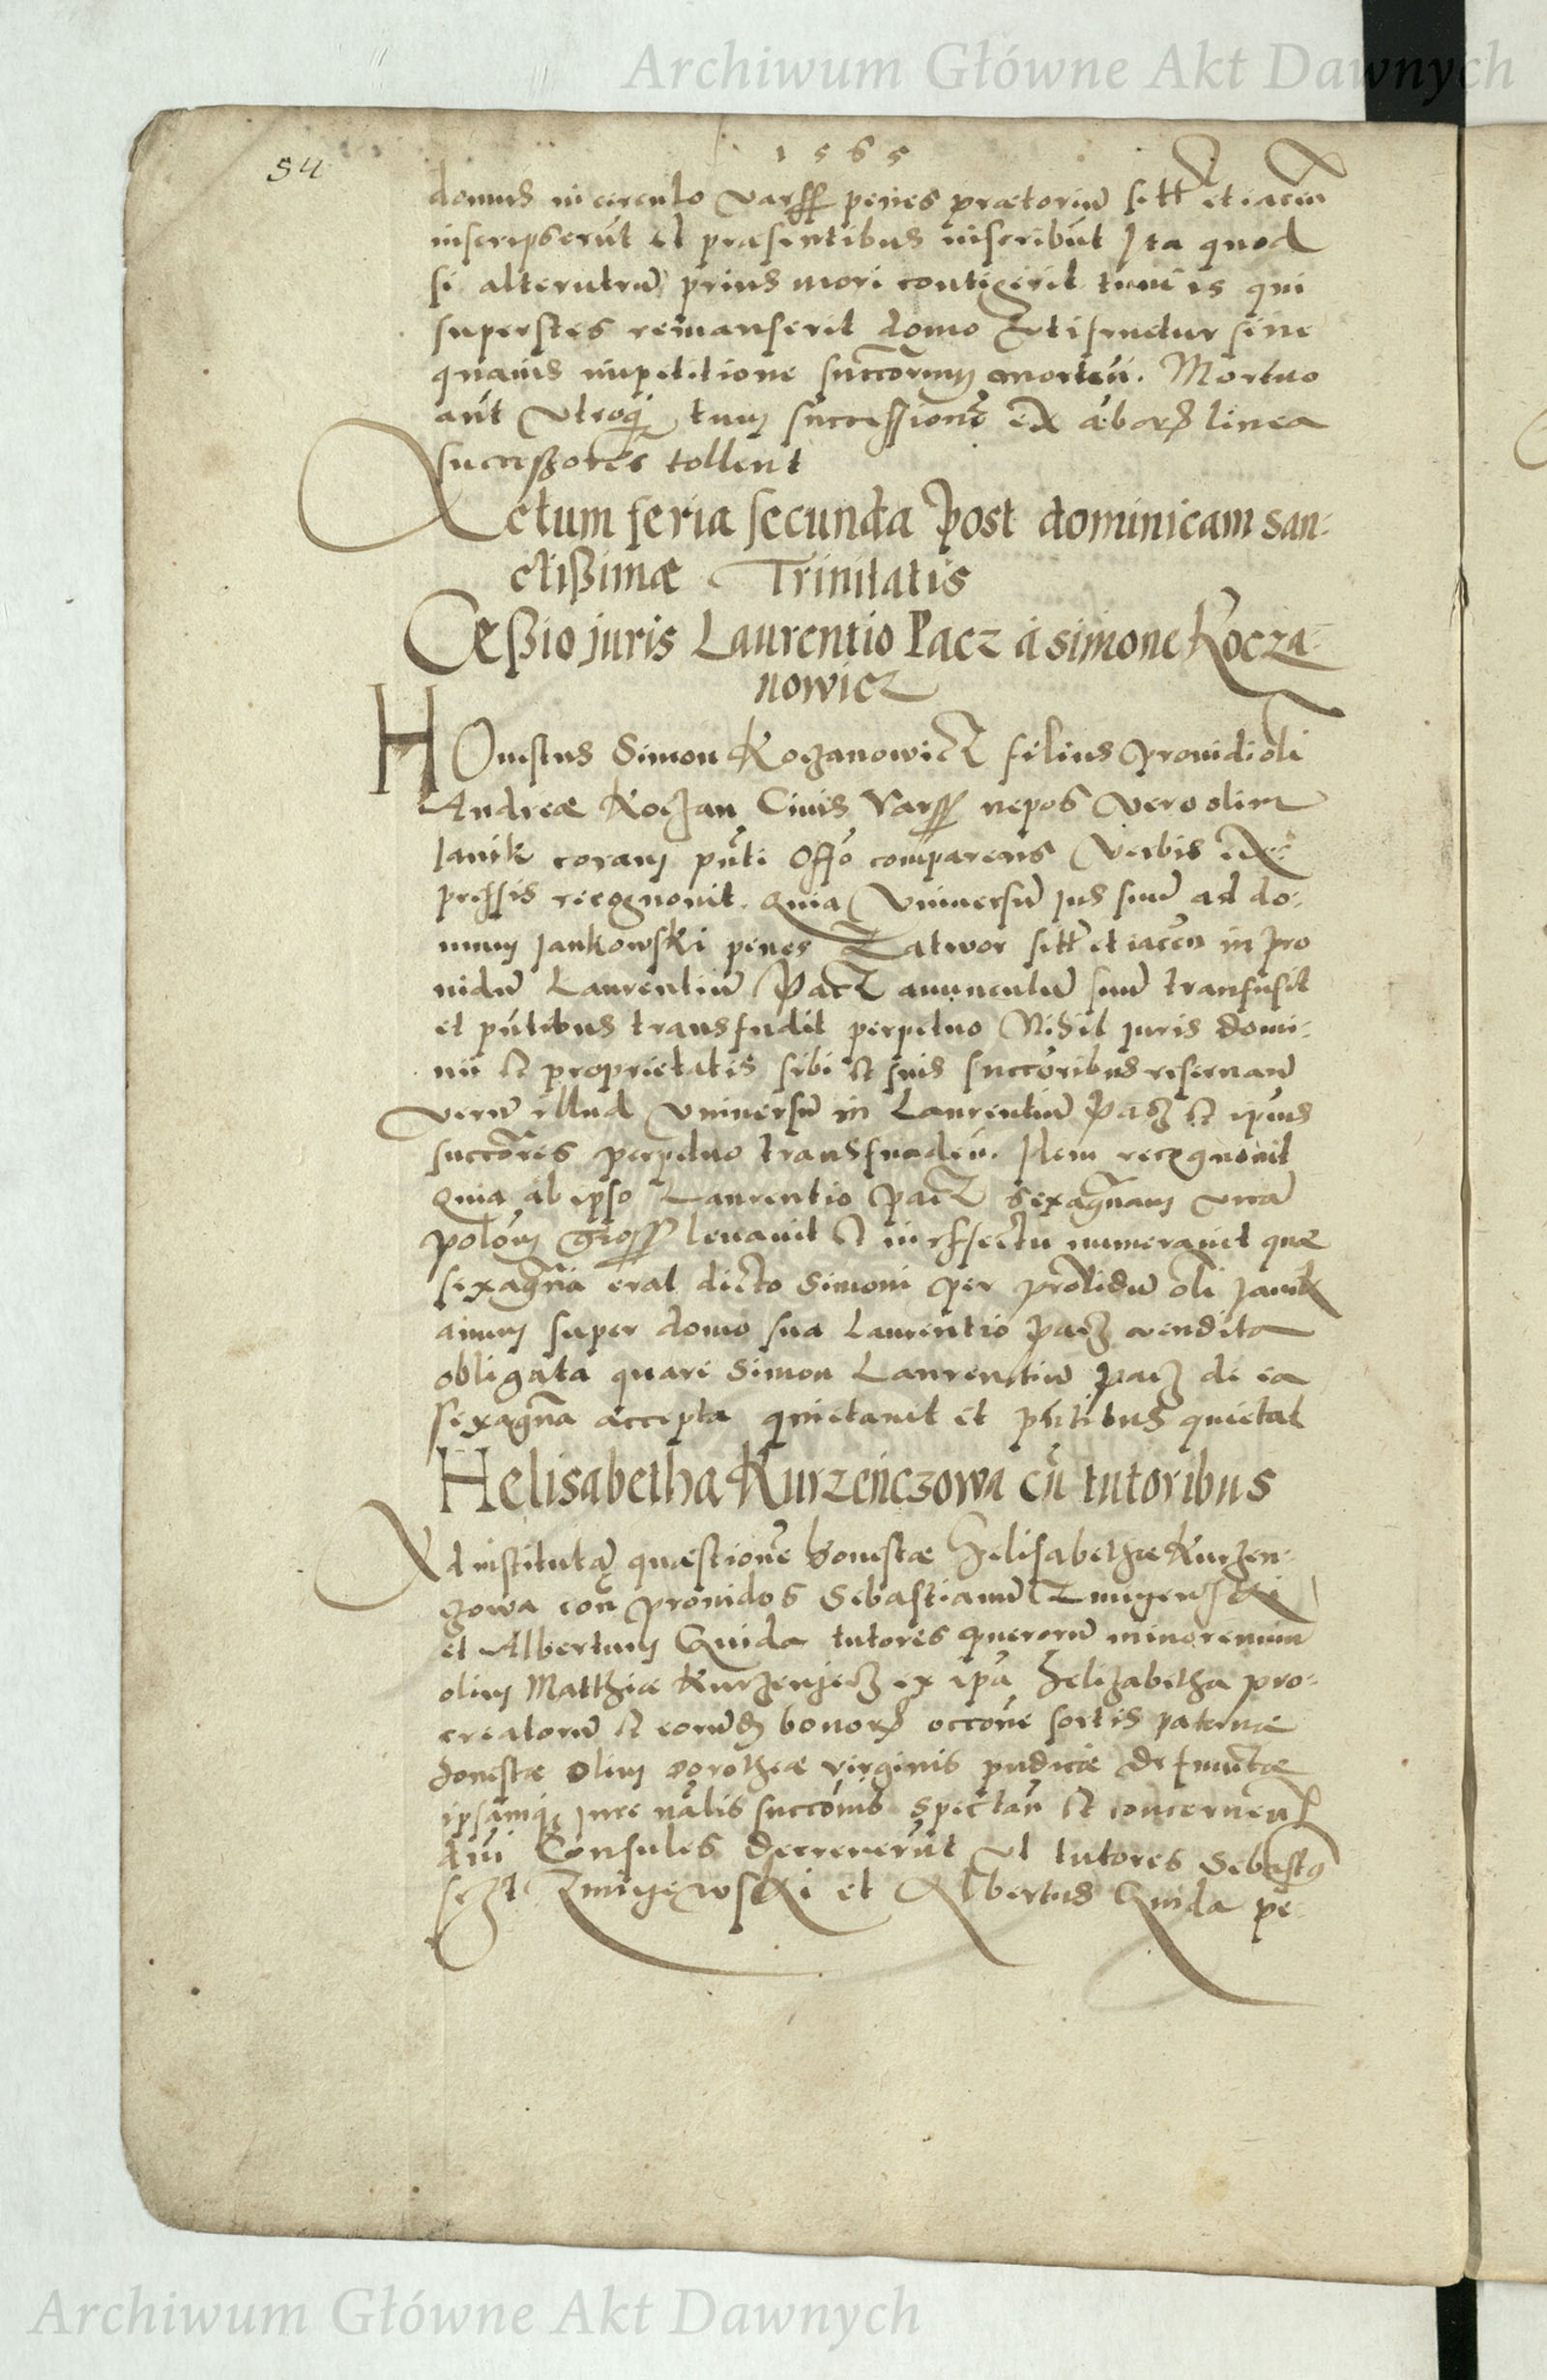 Archiwum Główne Akt Dawnych
54
1565
domus in circulo Varss penes prætoriu sitt et iacen
inscripserut et præsentibus inscribut Ita quod
si alterutru prius mori contigerit tum is qui
superstes remanserit domo utifruetur sine
quavis impetitione succorum mortui. Mortuo
aut utroq tum successione ex abor linea
successores tollent
Actum feria secunda post dominicam san-
ctißimæ Trinitatis
Ceßio juris Laurentio Pacz à simone Kocza-
nowicz
HOnestus Simon Koczanowicz filius providi oli
Andreæ Koczan Civis Varss nepos vero olim
Janik coram pnti Offo comparens verbis ex-
pressis recognovit. Quia universu jus suu ad do-
mum Jankowski penes Zatwor sitt et iacen in pro
vidu Laurentiu Pacz avunculu suu transfusit
et pntibus transfudit perpetuo Nihil juris domi-
nii et proprietatis sibi et suis succoribus reservan
veru illud universu in Laurentiu Pacz et ipius
succores perpetuo transfunden. Item recognovit
Quia ab ipso Laurentio Pacz sexagenam una
polom Gross levavit et in effectu numeravit quæ
sexagna erat dicto Simoni per providu oli Janik
avum super domo sua Laurentio Pacz vendita
obligata quare Simon Laurentiu Pacz de ea
sexagna accepta quietavit et pntibus quietat
Helisabetha Kurzenczowa cu tutoribus
Ad instituta quæstione honestæ Helisabethæ Kurzen-
czowa con providos Sebastianu Zmigewski
et Albertum Gwida tutores pueroru minorennium
olim Matthiæ Kurzenjecz ex ipa Helizabetha pro-
creatoru et eorud bonor occone sortis paternæ
honestæ olim Dorotheæ virginis pudicæ defunctæ
ipsamq jure nalis succonis spectan et concernen
dni Consules decreverut ut tutores Sebastia
Zmigewski et Albertus Gwida pe-
Archiwum Główne Akt Dawnych